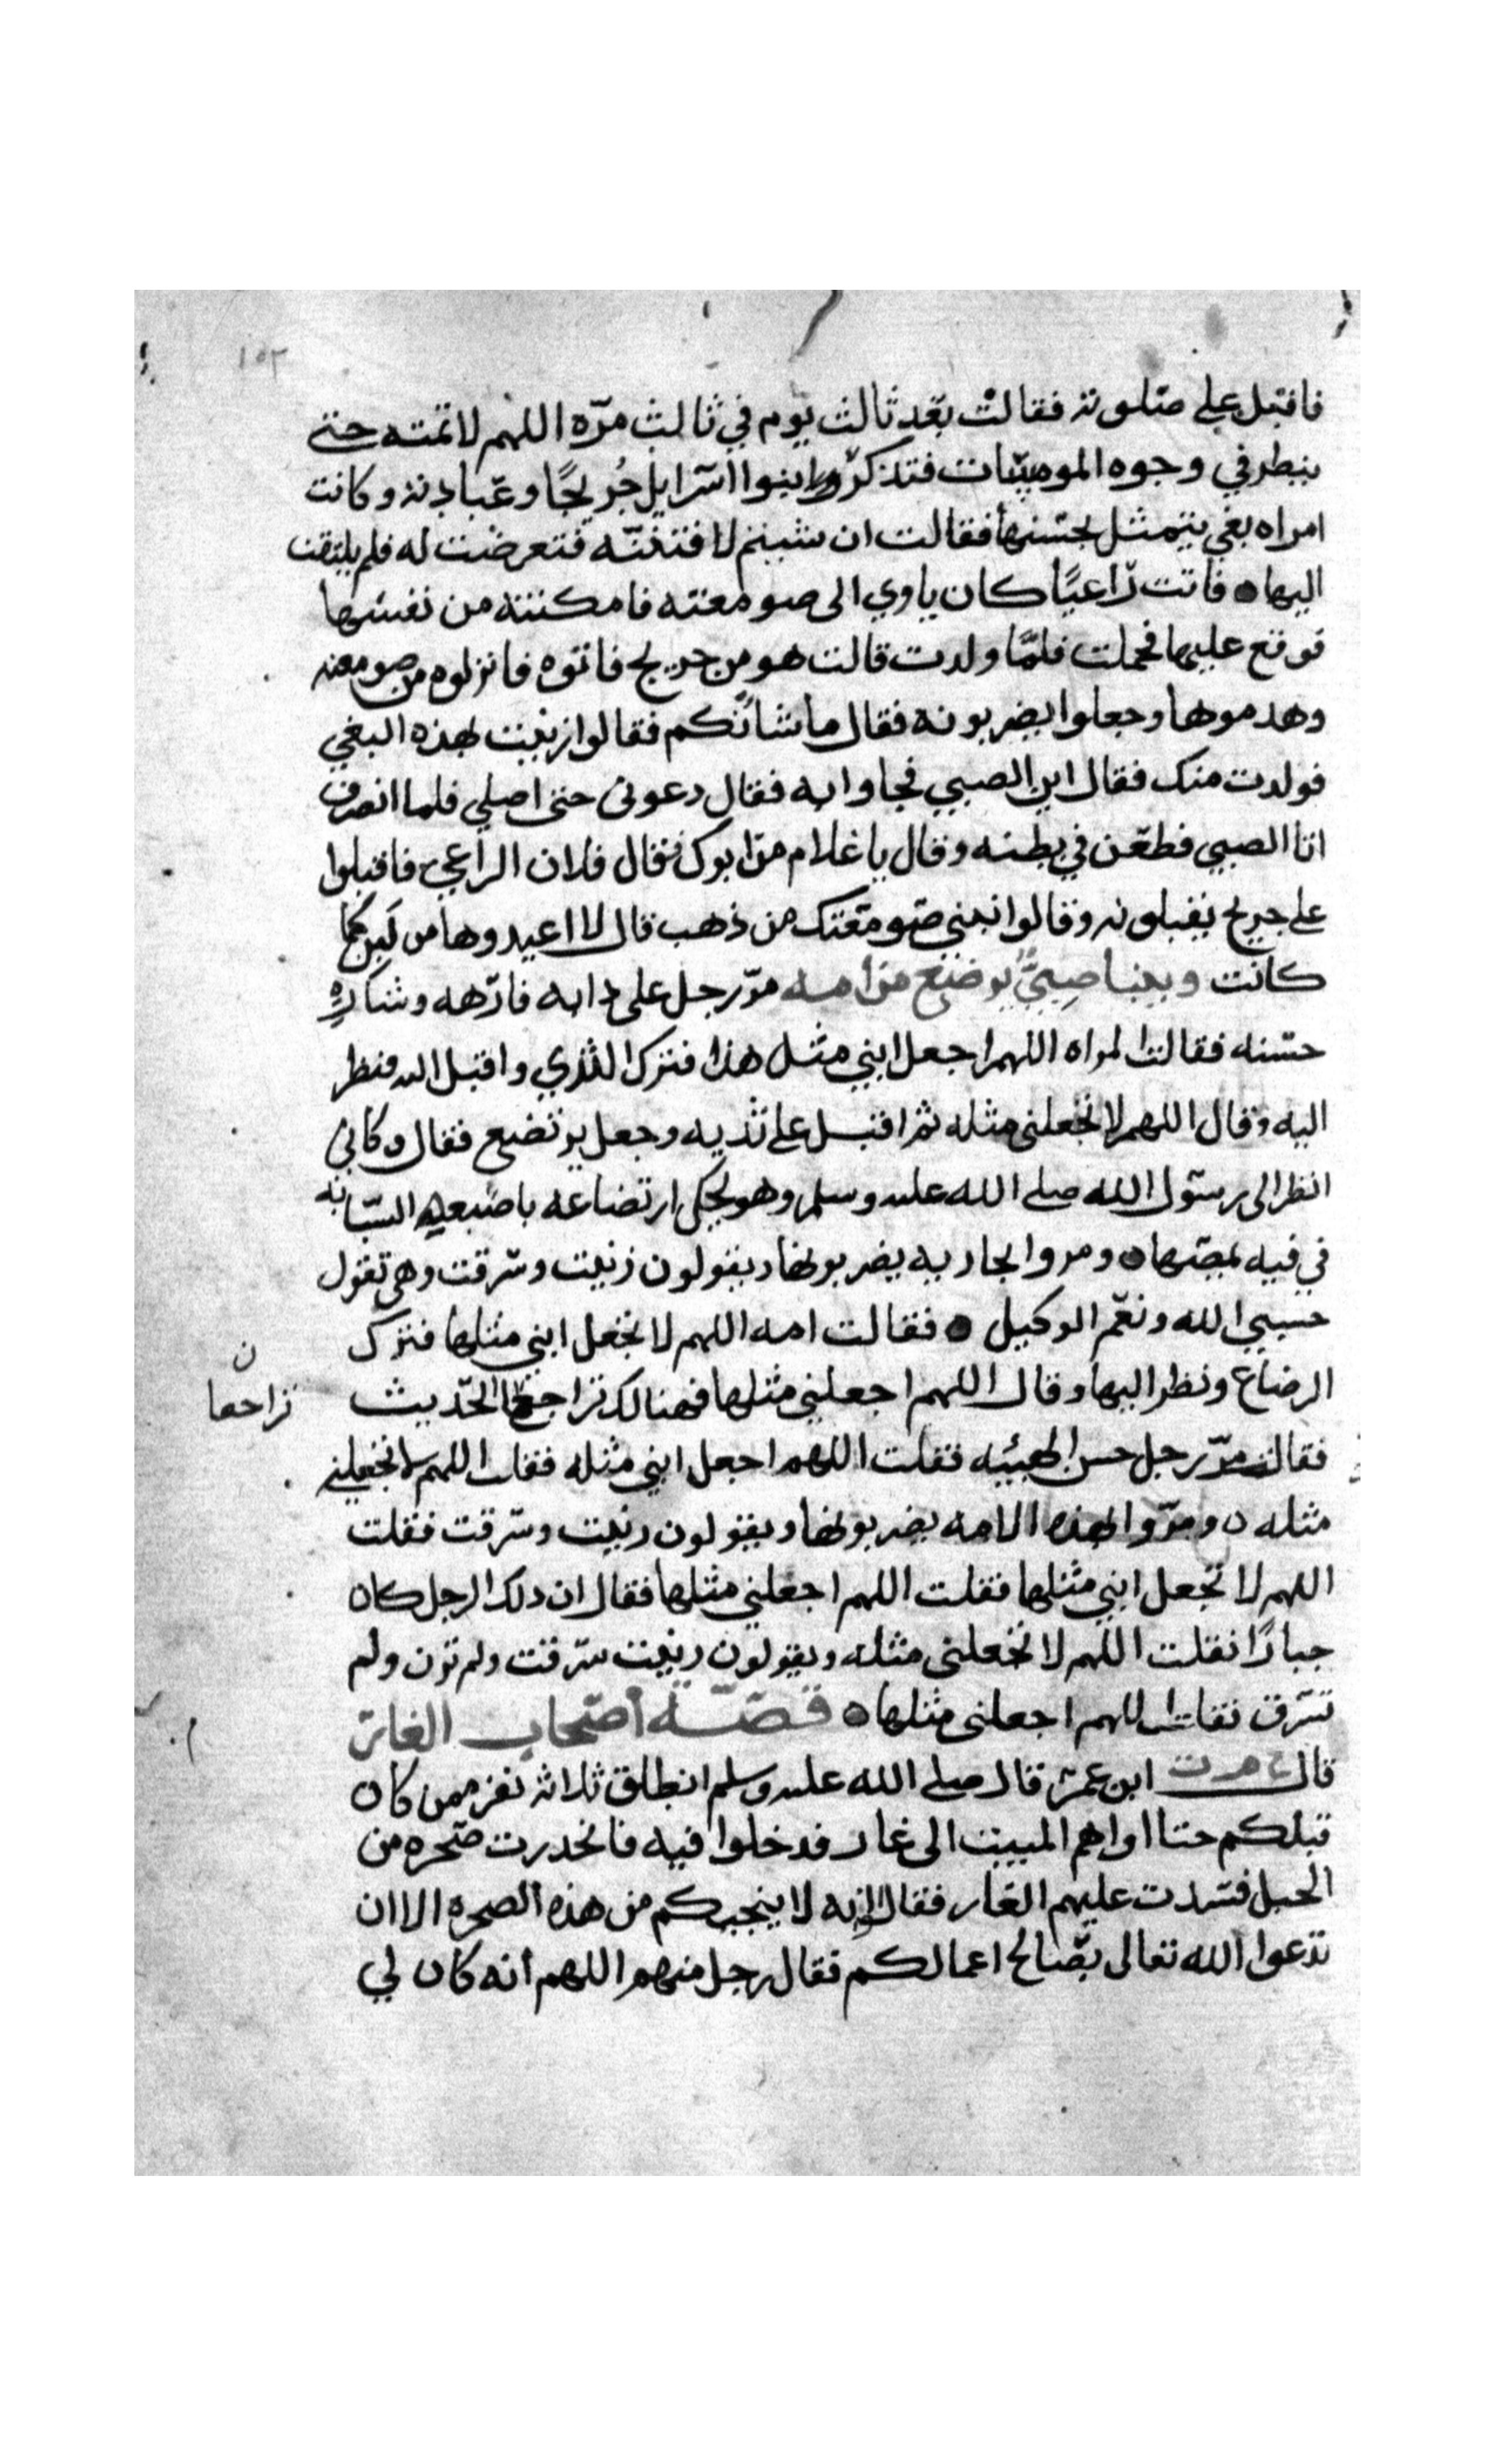 ١٥٢
فاقبل على صلوته فقالت بعد ثالث يوم في ثالث مرّه اللهم لا تمته حتى
ينظر في وجوه المومسات فتذكروا بنوا اسرايل جُريجًا وعبادته وكانت
امراه بغي يتمثل بحسنها فقالت ان شيتم لافتننّه فتعرضت له فلم يلتفت
اليها فاتت راعيًا كان ياوي الى صومعته فامكنته من نفسها
فوقع عليها فحملت فلمّا ولدت قالت هو من جريج فاتوه فانزلوه من صومعته
وهدموها وجعلوا يضربونه فقال ما شأنكم فقالوا زنيت بهذه البغي
فولدت منك فقال اين الصبي فجاوا به فقال دعوني حتى اصلي فلما انصرف
اتا الصبي فطعن في بطنه وقال يا غلام من ابوك فقال فلان الراعي فاقبلوا
على جريج يقبلونه وقالوا نبني صومعتك من ذهب قال لا اعيدوها من لبن كما
كانت وبينا صبيّ يرضع من امه مرّ رجل على دابه فارهه وشاره
حسنه فقالت المراه اللهم اجعل ابني مثل هذا فترك الثدي واقبل اليه فنظر
اليه وقال اللهم لا تجعلني مثله ثم اقبل على ثديه وجعل يرتضع فقال وكاني
انظر الى رسول الله صلى الله عليه وسلم وهو يحكي ارتضاعه باصبعه السبابه
في فيه يمصها ومروا بجاريه يضربونها ويقولون زنيت وسرقت وهي تقول
حسبي الله ونعم الوكيل فقالت امه اللهم لا تجعل ابني مثلها فترك
الرضاع ونظر اليها وقال اللهم اجعلني مثلها فهنالك تراجعا الحديث
ن تراجعا
فقالت مرّ رجل حسن الهيئه فقلت اللهم اجعل ابني مثله فقلت اللهم لا تجعلني
مثله ومرّوا بهذه الامه يضربونها ويقولون زنيت وسرقت فقلت
اللهم لا تجعل ابني مثلها فقلت اللهم اجعلني مثلها فقال ان ذلك الرجل كان
جبارًا فقلت اللهم لا تجعلني مثله ويقولون زنيت سرقت ولم تزن ولم
تسرق فقلت اللهم اجعلني مثلها قصّة أصحاب الغار
قال ابن عمر قال صلى الله عليه وسلم انطلق ثلاثة نفر ممن كان
قبلكم حتا اواهم المبيت الى غار فدخلوا فيه فانحدرت صخره من
الجبل فسدت عليهم الغار فقال انه لا ينجيكم من هذه الصخره الا ان
تدعوا الله تعالى بصالح اعمالكم فقال رجل منهم اللهم انه كان لي